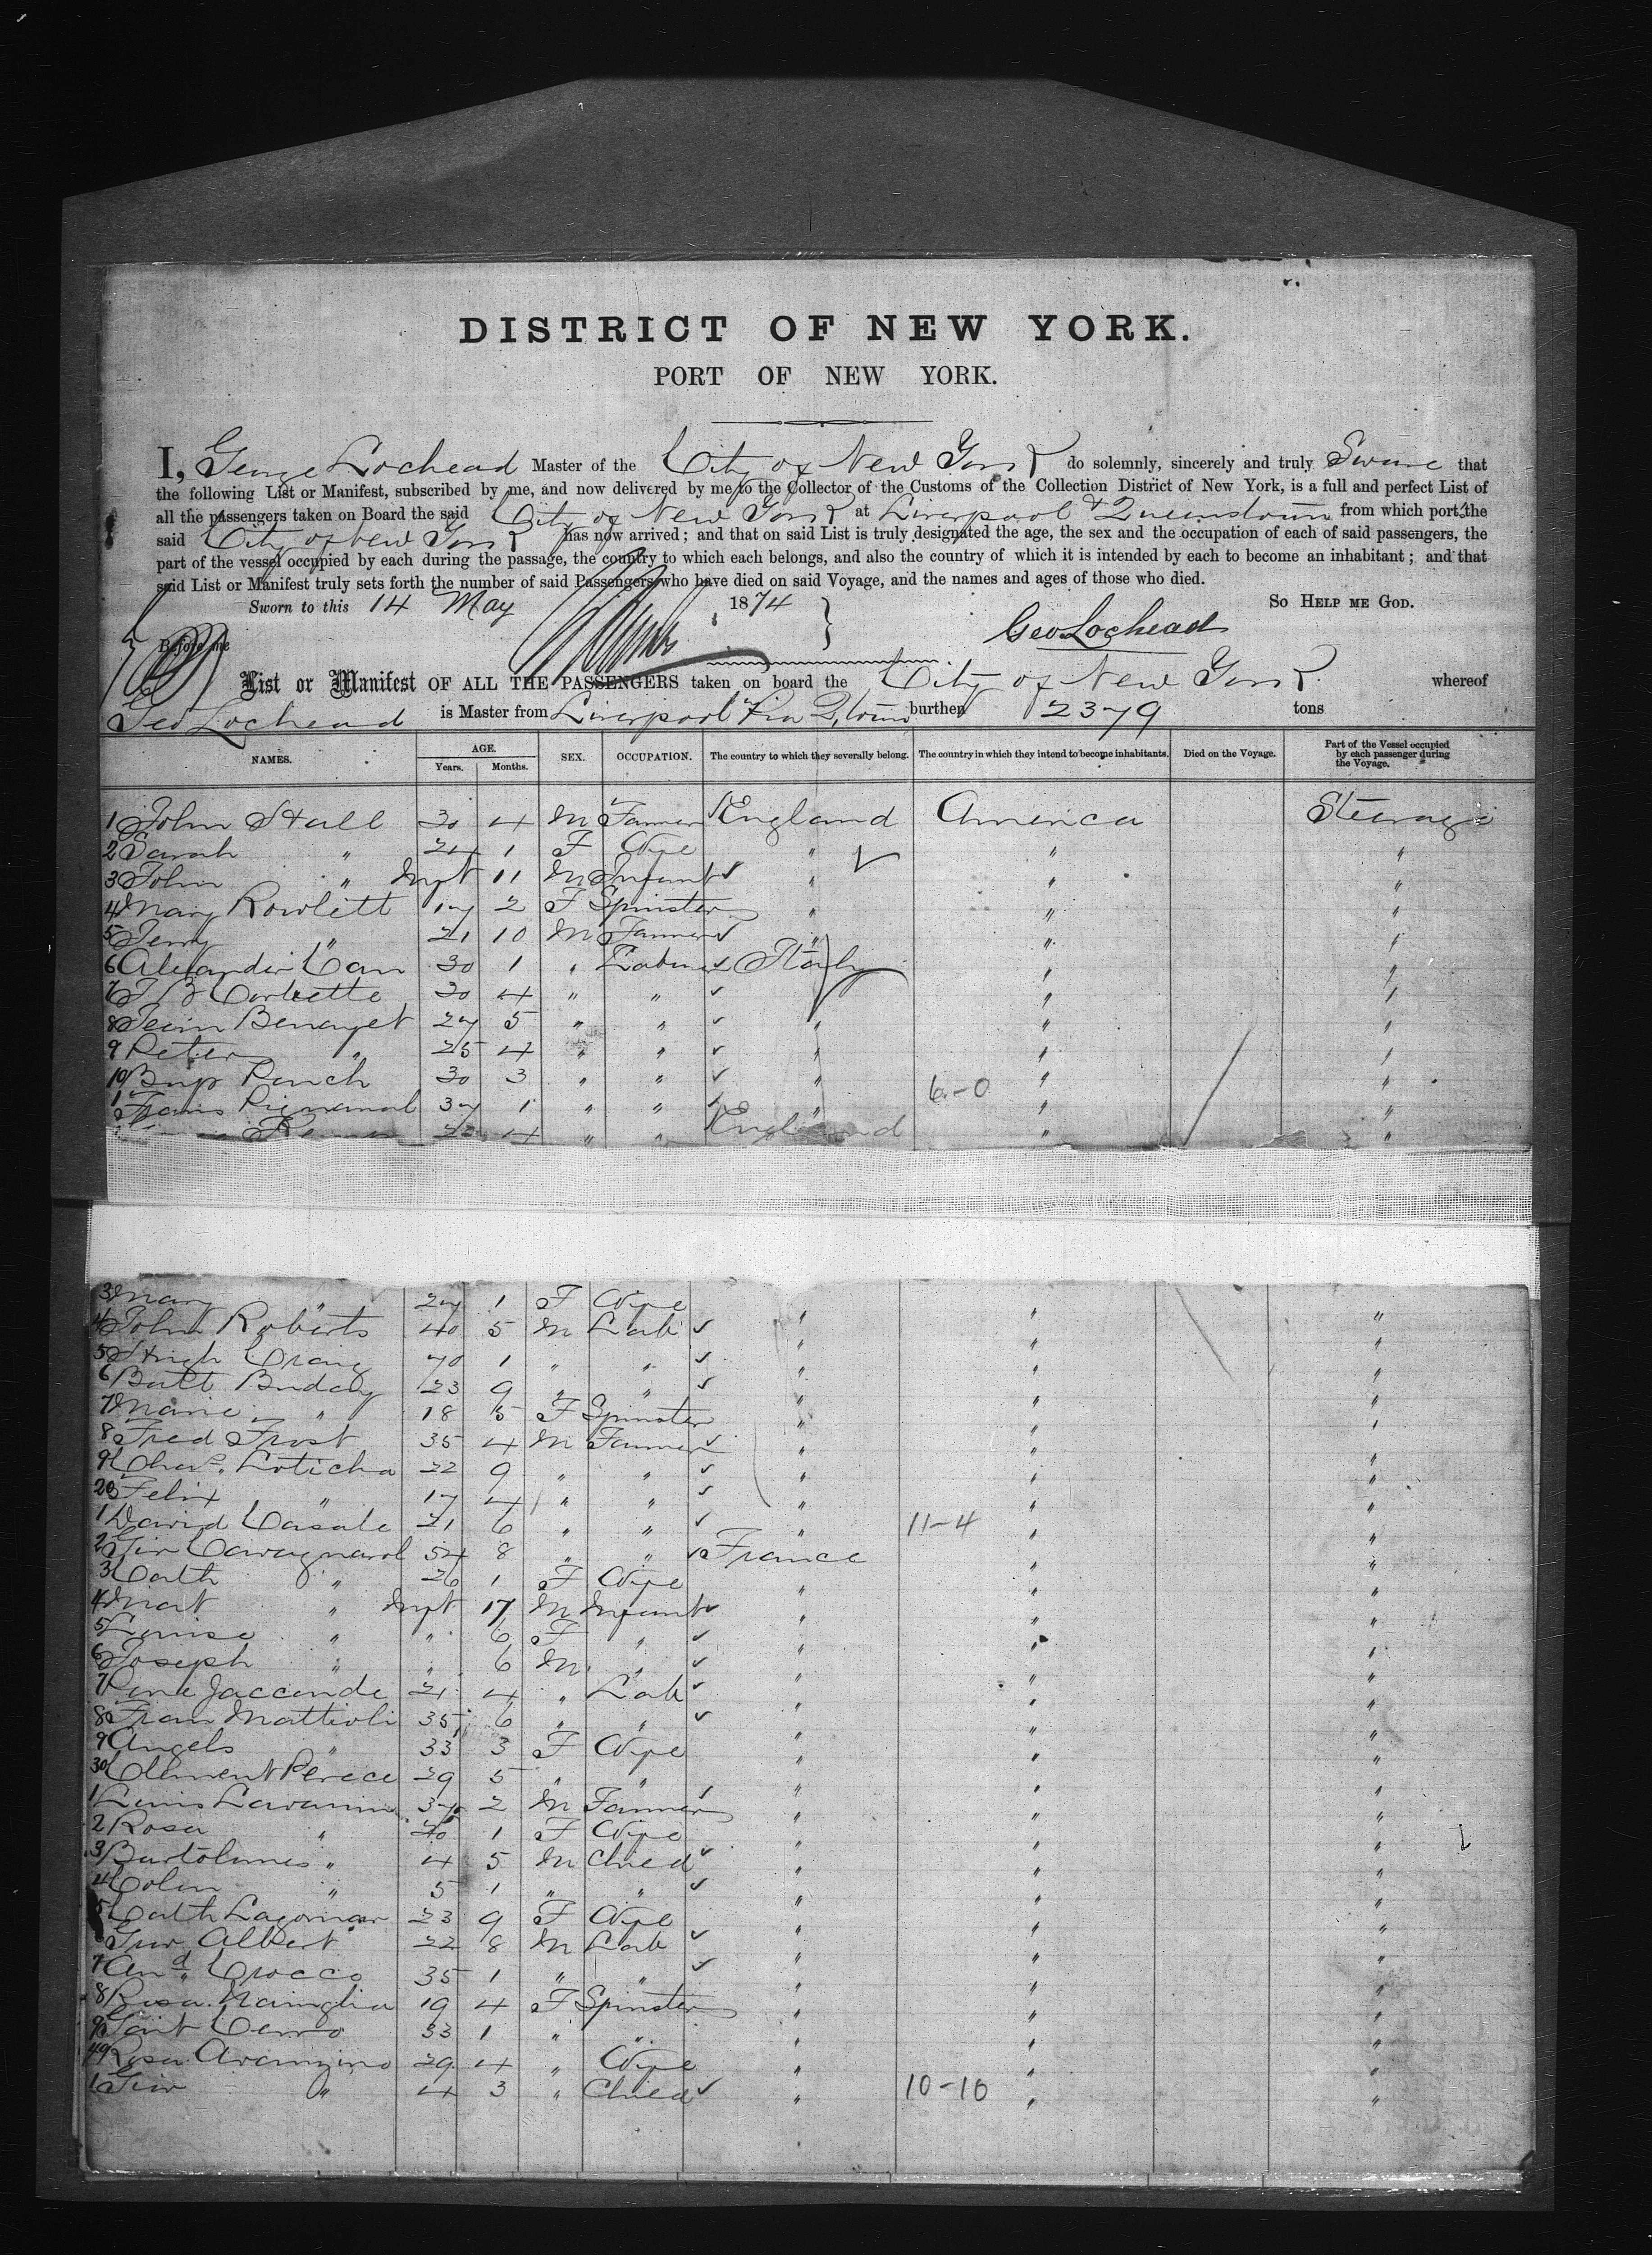 DISTRICT OF NEW YORK.
PORT OF NEW YORK.
I, George Lochead Master of the City of New York do solemnly, sincerely and truly Swear that
the following List or Manifest, subscribed by me, and now delivered by me to the Collector of the Customs of the Collection District of New York, is a full and perfect List of
all the passengers taken on Board the said City of New York at Liverpool & Queenstown from which port the
said City of New York has now arrived; and that on said List is truly designated the age, the sex and the occupation of each of said passengers, the
part of the vessel occupied by each during the passage, the country to which each belongs, and also the country of which it is intended by each to become an inhabitant; and that
said List or Manifest truly sets forth the number of said Passengers who have died on said Voyage, and the names and ages of those who died.
Sworn to this 14 May 1874 So HELP ME GOD.
Before me Geo Lochead
List or Manifest OF ALL THE PASSENGERS taken on board the City of New York whereof
Geo Lochead is Master from Liverpool burthen 2379 tons
NAMES. AGE. Years. Months. SEX. OCCUPATION. The country to which they severally belong. The country in which they intend to become inhabitants. Died on the Voyage. Part of the Vessel occupied by each passenger during the Voyage.
1 John Hall 30 4 M Farmer England America Steerage
2 Sarah " 1 F Wife " " "
3 John " Inft 11 M Infant " " "
4 Mary Rowlett 17 2 F Spinster " " "
5 " 21 10 M Farmer " " "
6 Alexander 30 1 " Labour Italy " "
7 30 4 " " " "
8 27 5 " " " " "
9 Peter " 25 4 " " " " "
10 30 3 " " " " "
1 37 1 " " " 6-0 " "
4 " " England " "
3 Mary " 27 1 F Wife " " "
4 John Roberts 40 5 M Lab " " "
5 Hugh Craig 70 1 " " " " "
6 23 9 " " " " "
7 Marie " 18 5 F Spinster " " "
8 Fred Frost 35 4 M Farmer " " "
9 Chas. Loticha 22 9 " " " " "
20 Felix " 17 4 " " " " "
1 David Casale 21 6 " " " 11-4 " "
2 54 8 " " France " "
3 Cath " 26 1 F Wife " " "
4 " Inft 17 M Infant " " "
5 Louise " " 6 F " " " "
6 Joseph " " 6 M " " " "
7 21 4 " Lab " " "
8 Fran Mattioli 35 6 " " " " "
9 Angels " 33 3 F Wife " " "
30 Clement Perece 29 5 " " " " "
1 Louis 2 M Farmer " " "
2 Rosa " 1 F Wife " " "
3 " 4 5 M Child " " "
4 Colin " 5 1 " " " " "
5 Cath 23 9 F Wife " " "
Albert 22 8 M Lab " " "
7 And. Crocco 35 1 " " " " "
8 Rosa 19 4 F Spinster " " "
9 33 1 " " " " "
40 Rosa 29 4 " Wife " " "
1 " 4 3 " Child " 10-10 " "